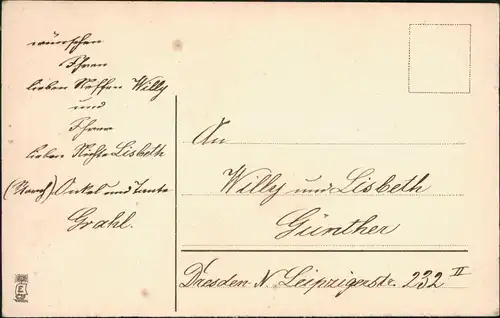 wünschen
Ihren
lieben Neffen Willy
und
Ihrer
lieben Nichte Lisbeth
Onkel und Tante
Grahl.
An
Willy und Lisbeth
Günther
Dresden-N. Leipzigerstr. 232 II